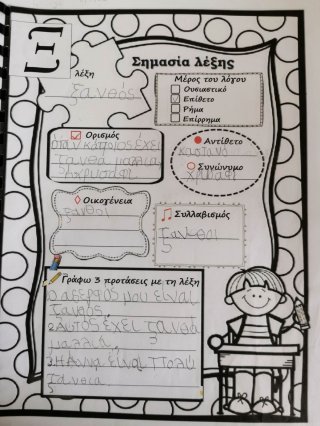 Ξ
Σημασία λέξης
λέξη
ξανθός
Μέρος του λόγου
Ουσιαστικό
Επίθετο
Ρήμα
Επίρρημα
Ορισμός
όταν κάποιος έχει
ξανθά μαλλιά
Αντίθετο
καστανό
Συνώνυμο
χρυσαφί
Οικογένεια
ξανθοί
Συλλαβισμός
Γράφω 3 προτάσεις με τη λέξη
μου είναι
ξανθός,
2 Αυτός έχει ξανθά
μαλλιά,
3 Η Άννα είναι πολύ